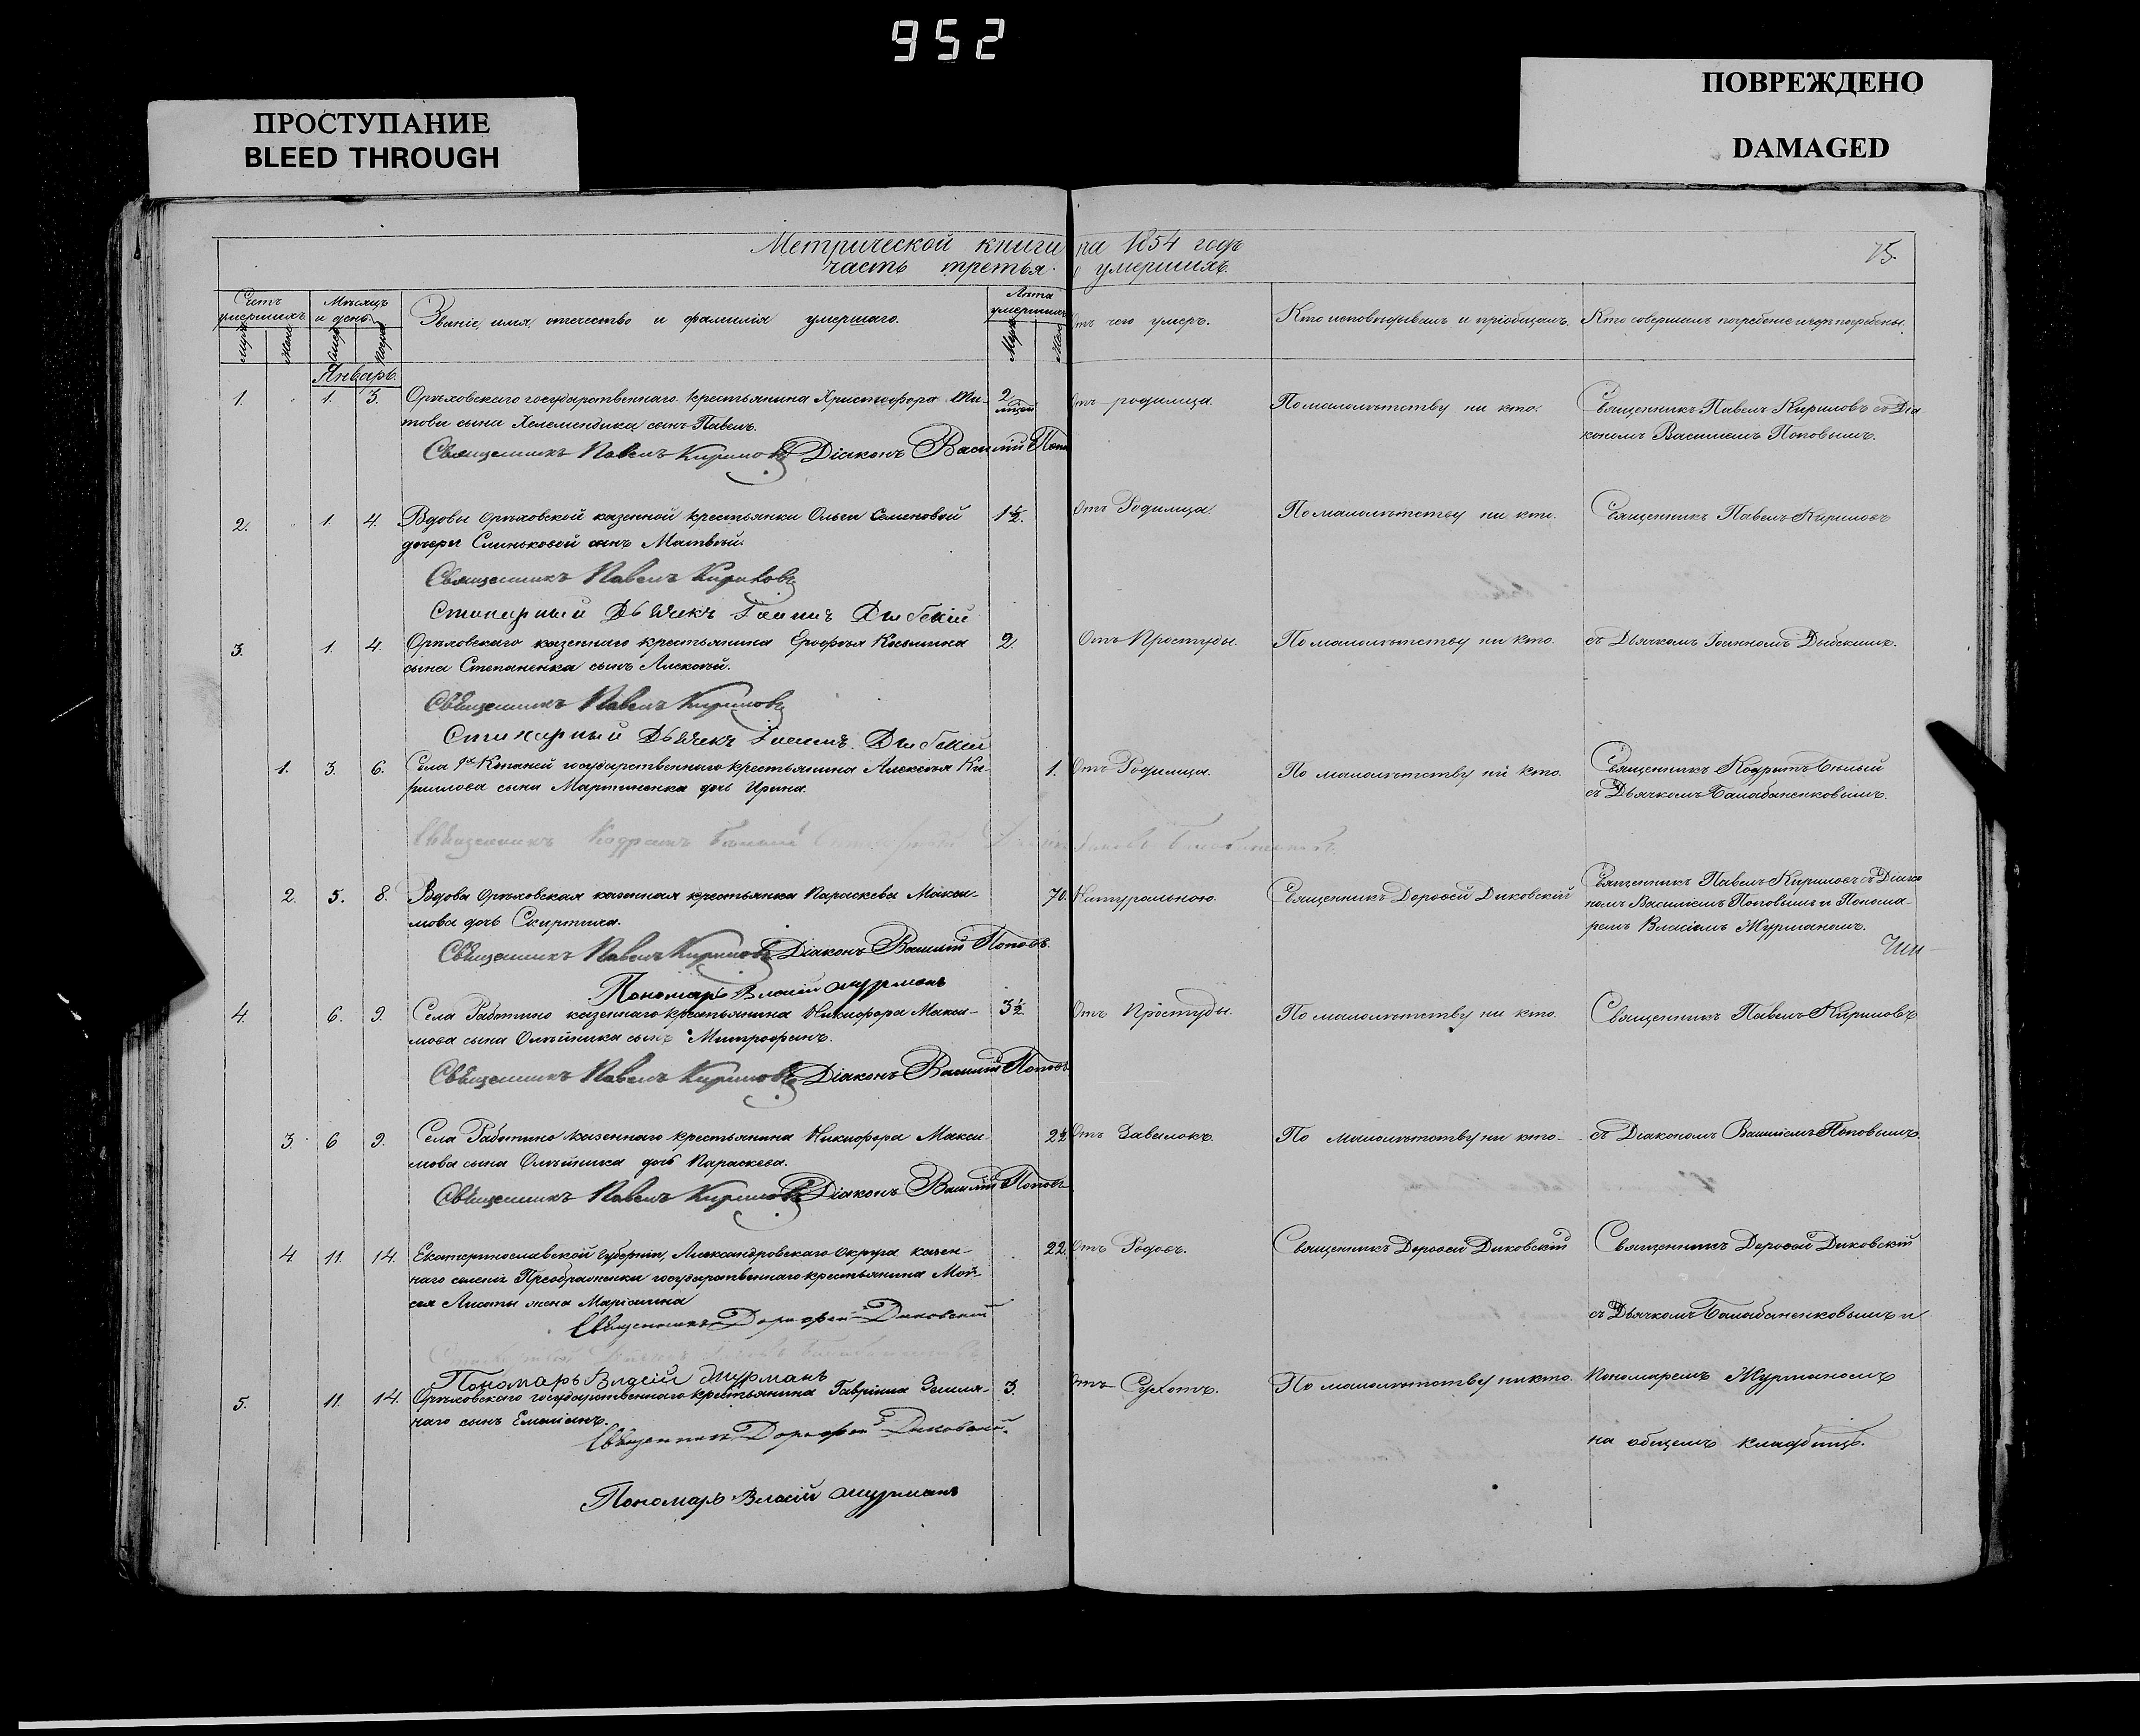 952
ПРОСТУПАНИЕ
BLEED THROUGH
ПОВРЕЖДЕНО
DAMAGED
Метрической книги на 1854 годъ
часть третья о умершихъ.
75.
Счетъ умершихъ
Муж. Жен.
Мѣсяцъ и день
Званіе, имя, отечество и фамилія умершаго.
Лѣта умершихъ
Муж. Жен.
Отъ чего умеръ.
Кто исповѣдывалъ и пріобщалъ.
Кто совершалъ погребеніе и гдѣ погребены.
Январь.
1. 1. 3. Орѣховскаго государственнаго крестьянина Христофора Ти- 2 мѣсяц. Отъ родимца. По малолѣтству ни кто. Священникъ Павелъ Кириловъ съ Діа
това сына Хелемендика сынъ Павелъ. кономъ Василіемъ Поповымъ.
Священникъ Павелъ Кириловъ Діаконъ Василій Попо
2. 1. 4. Вдовы Орѣховской казенной крестьянки Ольги Семеновой 1½. Отъ Родимца. По малолѣтству ни кто. Священникъ Павелъ Кириловъ
дочери Слиньковой сынъ Матвѣй.
Священникъ Павелъ Кириловъ
Стихарный Дьячекъ Іоаннъ
3. 1. 4. Орѣховскаго казеннаго крестьянина Ерофѣя Козьмина 2. Отъ Простуды. По малолѣтству ни кто. съ Дьячкомъ Іоанномъ Дибскимъ.
сына Степаненка сынъ Алексѣй.
Священникъ Павелъ Кириловъ
Стихарный Дьячекъ Іоаннъ
1. 3. 6. Села 1й Копаней государственнаго крестьянина Алексѣя Ки- 1. Отъ Родимца. По малолѣтству ни кто. Священникъ Кодратъ Бѣлый
рилова сына Мартыненка дочь Ирина. съ Дьячкомъ Балабаненковымъ.
Священникъ Кодратъ Бѣлый
2. 5. 8. Вдова Орѣховская казенная крестьянка Параскева Макси- 70. Натуральною. Священникъ Дороѳей Диковскій Священникъ Павелъ Кириловъ съ Діако
мова дочь Скиртина. номъ Василіемъ Поповымъ и Понома-
ремъ Власіемъ Журманомъ.
Священникъ Павелъ Кириловъ Діаконъ Василій Поповъ.
Пономарь Власій Журманъ
4. 6. 9. Села Работино казеннаго крестьянина Никифора Макси- 3½. Отъ Простуды. По малолѣтству ни кто. Священникъ Павелъ Кириловъ
мова сына Олѣйника сынъ Митрофанъ.
Священникъ Павелъ Кириловъ Діаконъ Василій Поповъ
3. 6 9. Села Работино казеннаго крестьянина Никифора Макси- 2½. Отъ Завалокъ. По малолѣтству ни кто. съ Діакономъ Василіемъ Поповымъ.
мова сына Олѣйника дочь Параскева.
Священникъ Павелъ Кириловъ Діаконъ Василій Поповъ
4 11. 14. Екатеринославской губерніи, Александровскаго округа казен- 22. Отъ Родовъ. Священникъ Дороѳей Диковскій Священникъ Дороѳей Диковскій
наго селенія Преображенки государственнаго крестьянина Мой-
сея Лисоты жена Маріанна
Священникъ Дорофей Диковскій
съ Дьячкомъ Балабаненковымъ и
Пономарь Власій Журманъ
5. 11. 14. Орѣховскаго государственнаго крестьянина Гавріила Земля- 3. Отъ Сухотъ. По малолѣтству ни кто. Пономаремъ Журманомъ
наго сынъ Емеліанъ.
Священникъ Дорофей Диковскій.
на общемъ кладбищѣ.
Пономарь Власій Журманъ